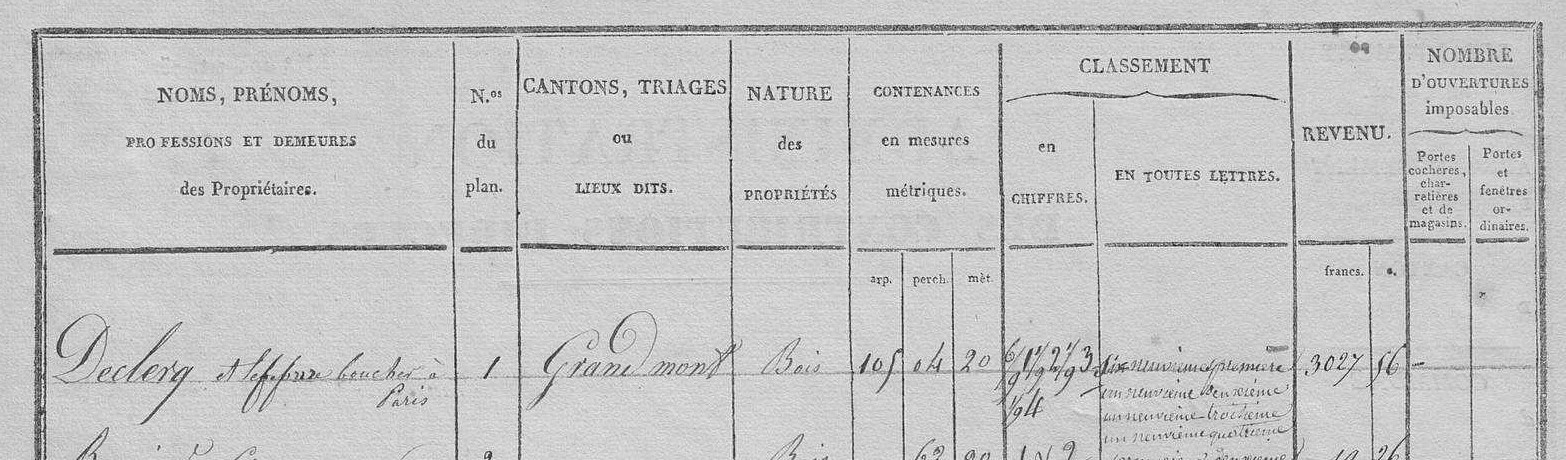 NOMS, PRÉNOMS,
PROFESSIONS ET DEMEURES
des Propriétaires.
N.os
du
plan.
CANTONS, TRIAGES
ou
LIEUX DITS.
NATURE
des
PROPRIÉTÉS
CONTENANCES
en mesures
métriques.
arp. perch. mèt.
CLASSEMENT
en
CHIFFRES.
EN TOUTES LETTRES.
REVENU.
francs. c.
NOMBRE
D'OUVERTURES
imposables
Portes
cochères,
char-
retières
et de
magasins.
Portes
et
fenêtres
or-
dinaires.
Declerq boucher à 1 Grand mont Bois 105 04 20 6/9 1 1/9 2 1/9 3 six neuvième première 3027 56
Paris
1/9 4 un neuvième deuxième
un neuvième troisième
un neuvième quatrième
2 Bois 26